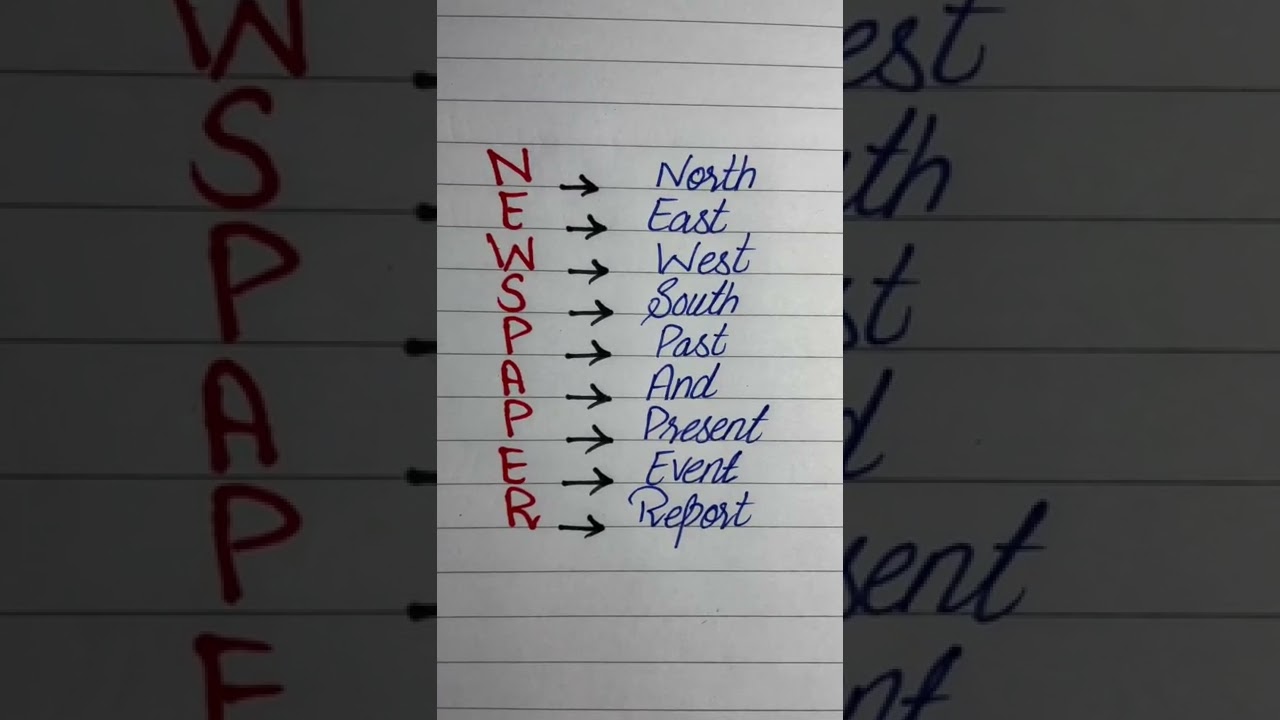 N → North
E → East
W → West
S → South
P → Past
A → And
P → Present
E → Event
R → Report